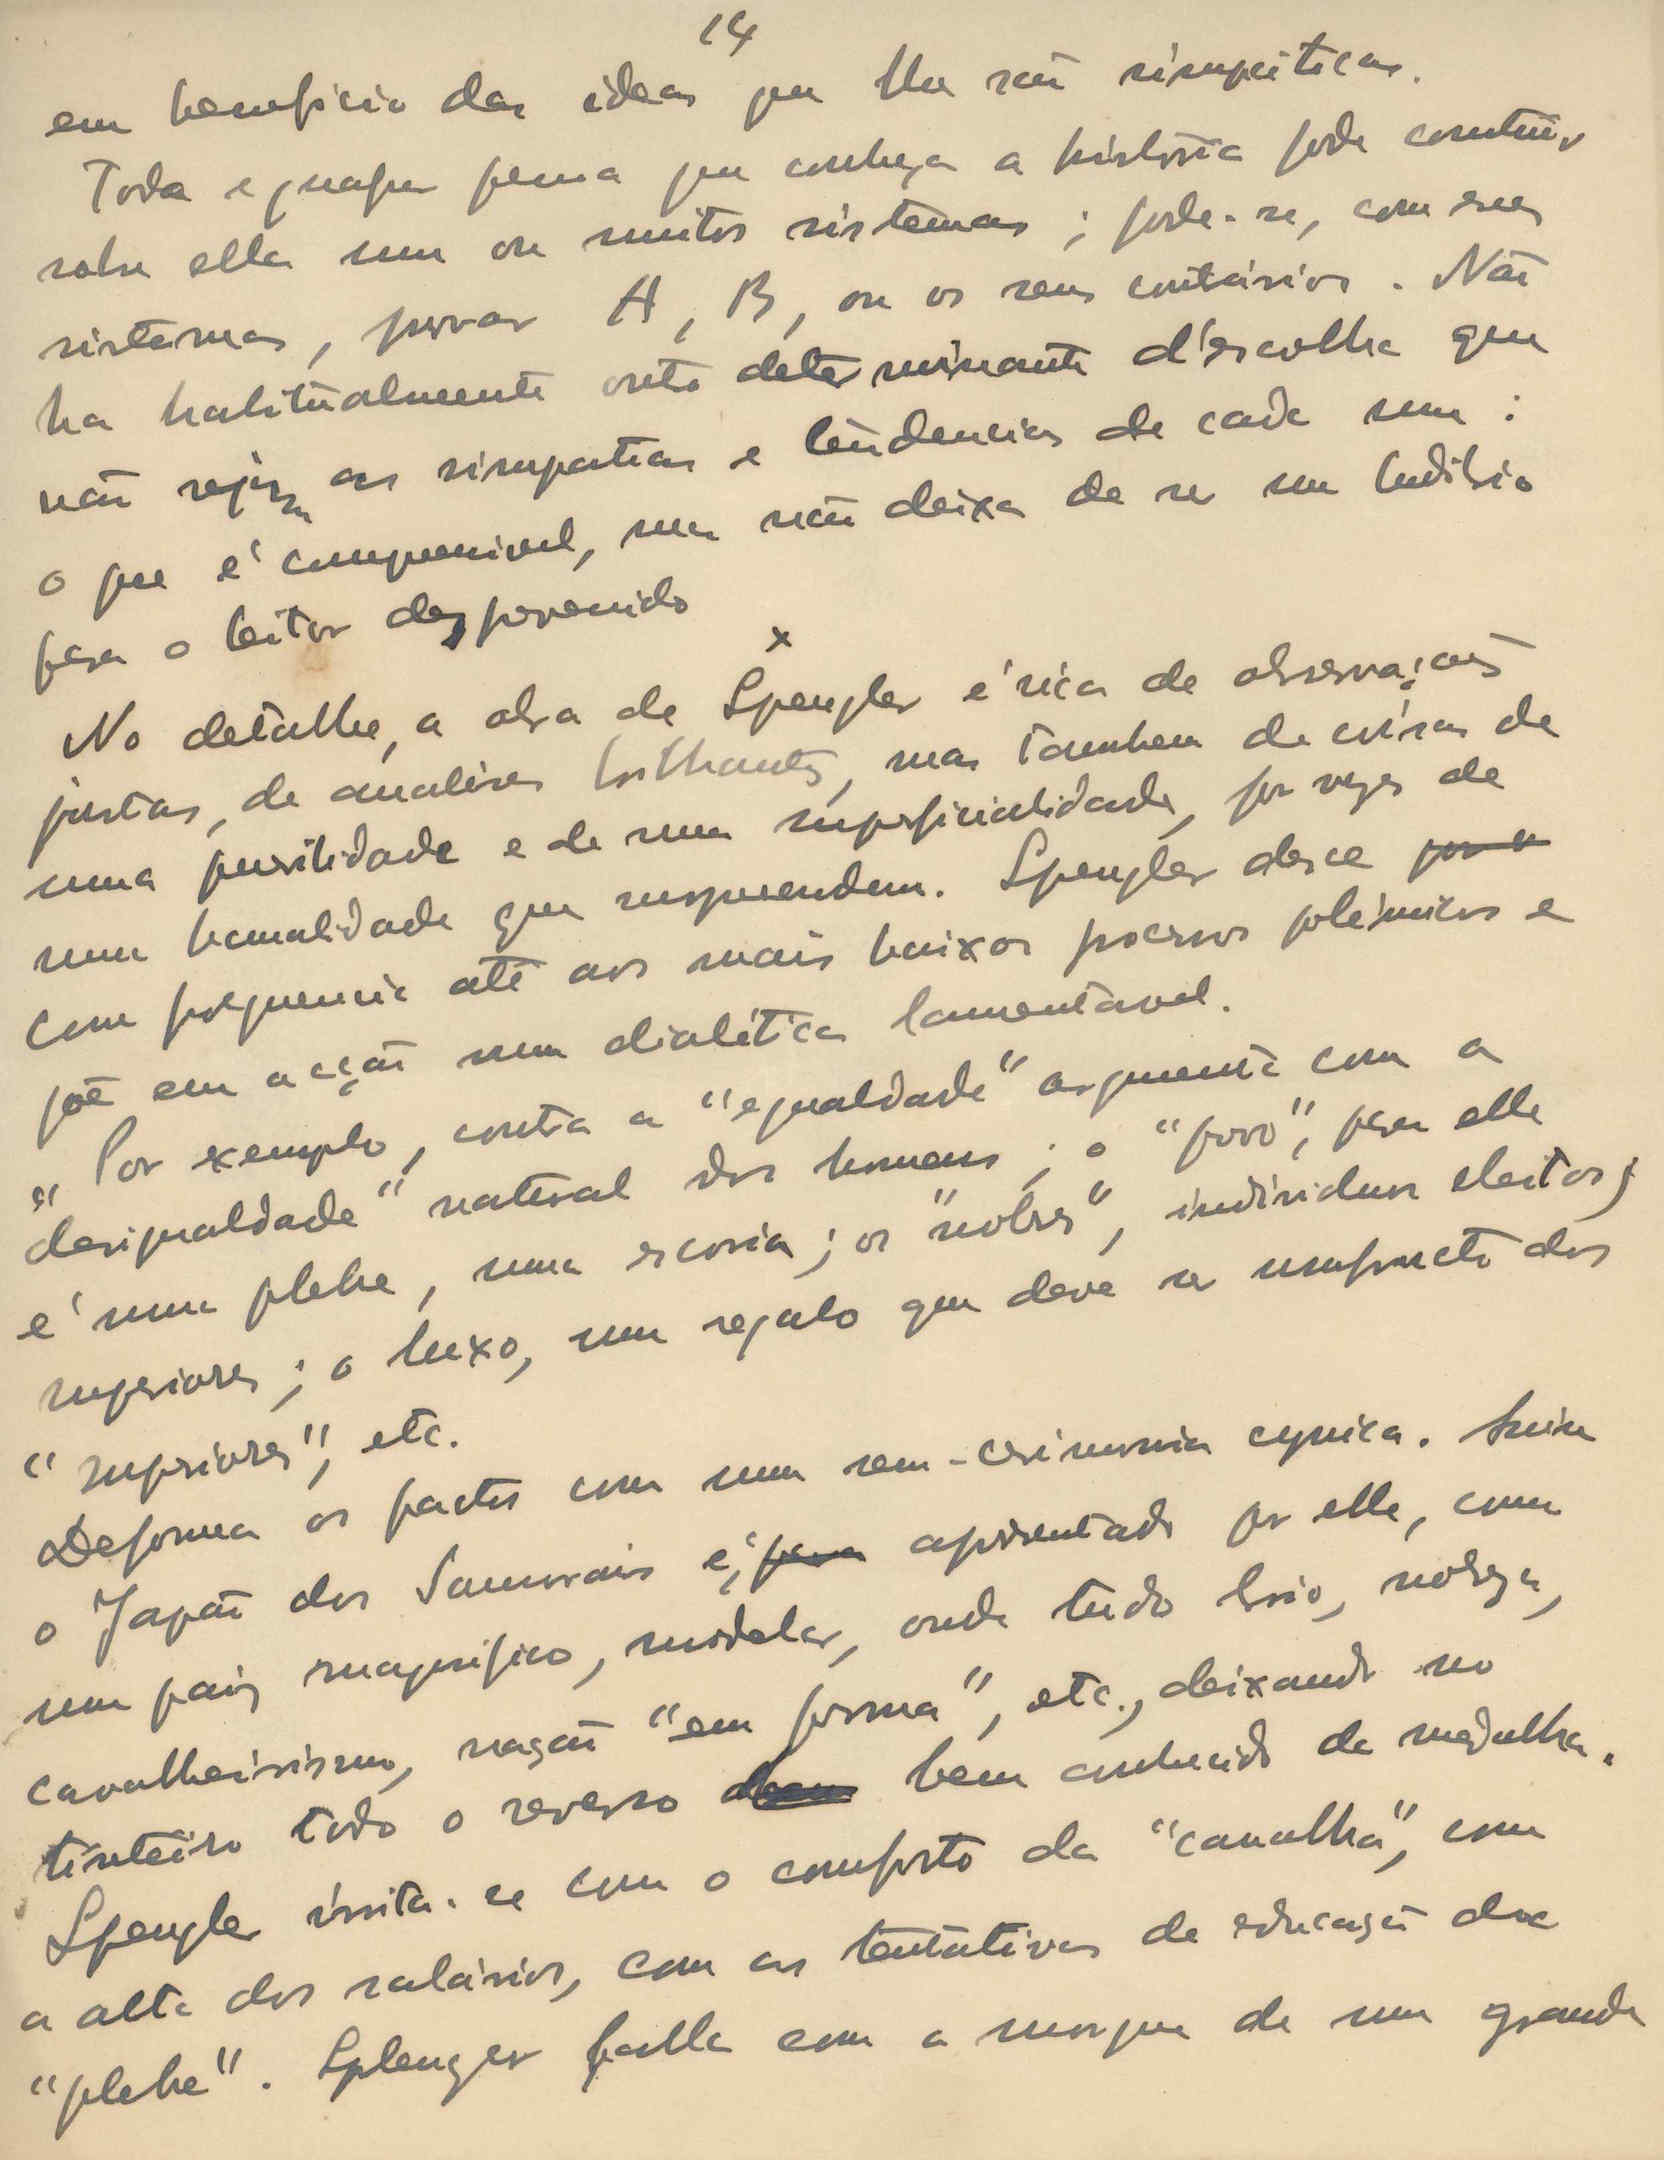 14
em beneficio das ideas que lhe são simpáticas.
Toda e qualquer pessoa que conheça a história pode construir
sobre ella um ou muitos sistemas; pode-se, com esses
sistemas, provar A, B, ou os seus contrários. Não
ha habitualmente outro determinante d'escolha que
não sejam as simpatias e tendencias de cada um:
o que é compreensivel, mas não deixa de ser um ludibrio
para o leitor desprevenido
x
No detalhe, a obra de Spengler é rica de observações
justas, de analises brilhantes, mas tambem de coisas de
uma puerilidade e de uma superficialidade, por vezes de
uma banalidade que surpreendem. Spengler desce
com frequencia até aos mais baixos processos polémicos e
põe em acção uma dialética lamentavel.
Por exemplo, contra a "egualdade" argumenta com a
"desigualdade" natural dos homens; o "povo", para elle
é uma plebe, uma escoria; os "nobres", individuos eleitos,
superiores; o luxo, um regalo que deve ser usufructo dos
"superiores", etc.
Deforma os factos com uma sem-cerimonia cynica. Assim
o Japão dos Samurais é, apresentado por elle, como
um paiz magnifico, modelar, onde tudo brio, nobreza,
cavalheirismo, nação "em forma", etc., deixando no
tinteiro todo o reverso bem conhecido da medalha.
Spengler irrita-se com o conforto da "canalha", com
a alta dos salários, com as tentativas de educação da
"plebe". Splenger falla com a morgue de um grande